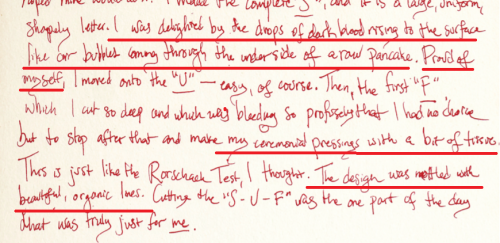 I made the complete "S", and it is a large, uniform,
shapely letter. I was delighted by the drops of dark blood rising to the surface
like air bubbles coming through the underside of a raw pancake. Proud of
myself, I moved onto the "U" — easy, of course. Then, the first "F"
which I cut so deep and which was bleeding so profusely that I had no choice
but to stop after that and make my ceremonial pressings with a bit of tissue.
This is just like the Rorschach Test, I thought. The design was mottled with
beautiful, organic lines. Cutting the "S-U-F" was the one part of the day
that was truly just for me.